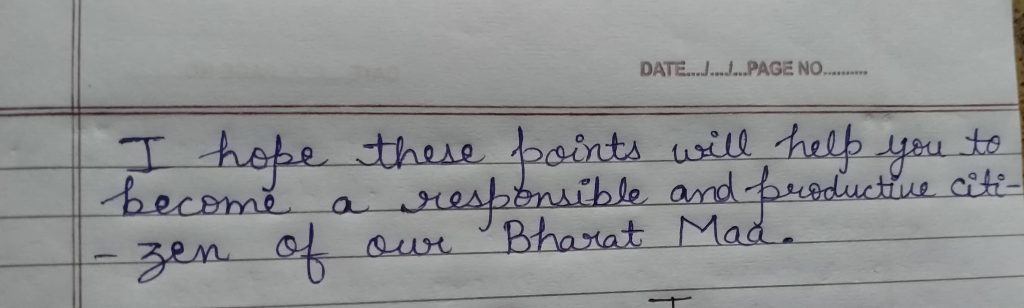 DATE..../..../....PAGE NO...........
I hope these points will help you to
become a responsible and productive citi-
- zen of our Bharat Maa.